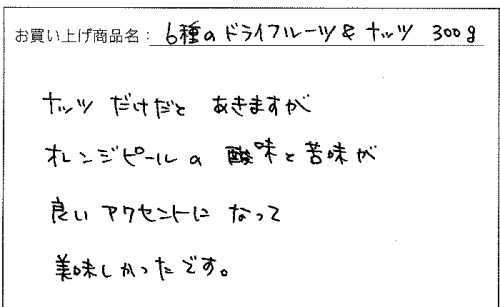 お買い上げ商品名：6種のドライフルーツ& ナッツ 300g
ナッツ だけだと あきますが
オレンジピールの 酸味と苦味が
良い アクセントに なって
美味しかったです。